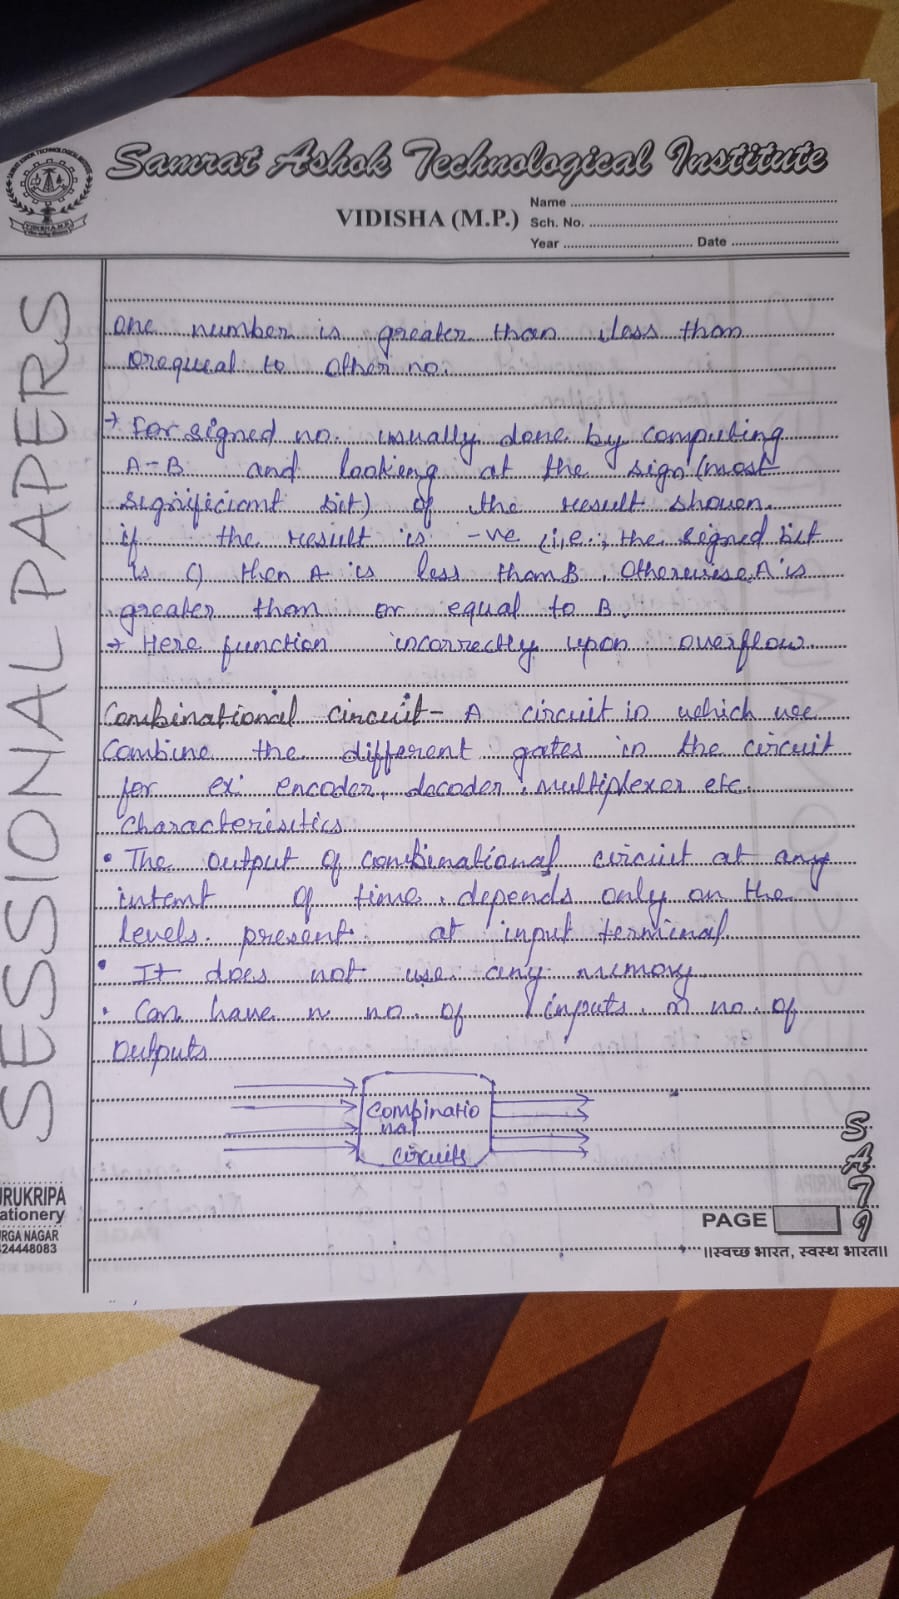 Samrat Ashok Technological Institute
VIDISHA (M.P.)
Name
Sch. No.
Year Date
SESSIONAL PAPERS
one number is greater than, less than
or equal to other no.
→ For signed no. usually done by computing
A-B and looking at the sign (most
significiant bit) of the result shown.
if the result is -ve (i.e., the signed bit
is 1) then A is less than B, otherwise A is
greater than or equal to B.
→ Here function incorrectly upon overflow.
Combinational circuit - A circuit in which we
combine the different gates in the circuit
for ex: encoder, decoder, multiplexer etc.
Characteristics
• The output of combinational circuit at any
intent of time, depends only on the
levels present at input terminal.
• It does not use any memory
• Can have n no. of inputs, m no. of
outputs
Combinatio
nal
circuits
URUKRIPA
ationery
RGA NAGAR
24448083
SATI
PAGE
।।स्वच्छ भारत, स्वस्थ भारत।।